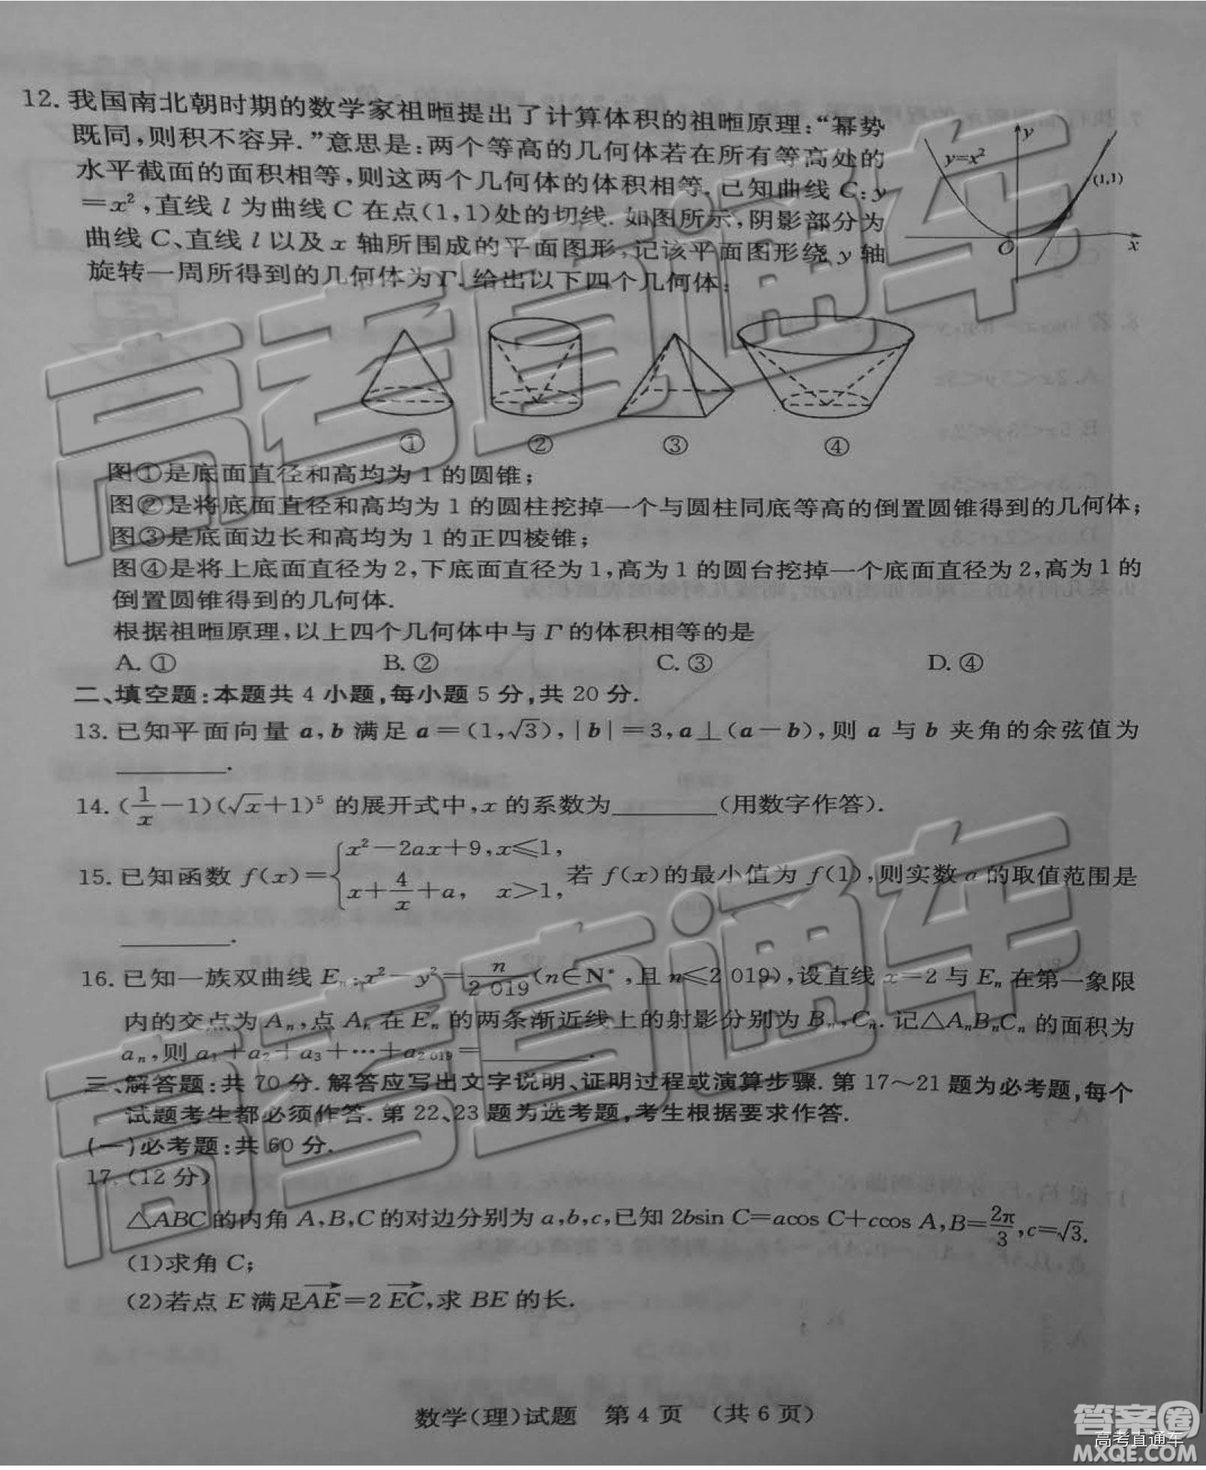 12. 我国南北朝时期的数学家祖暅提出了计算体积的祖暅原理:“幂势
既同,则积不容异.”意思是:两个等高的几何体若在所有等高处的
水平截面的面积相等,则这两个几何体的体积相等.已知曲线 C:y
=x²,直线 l 为曲线 C 在点(1,1)处的切线. 如图所示,阴影部分为
曲线 C、直线 l 以及 x 轴所围成的平面图形,记该平面图形绕 y 轴
旋转一周所得到的几何体为 Γ. 给出以下四个几何体:
y=x²
y
(1,1)
O
x
① ② ③ ④
图①是底面直径和高均为 1 的圆锥;
图②是将底面直径和高均为 1 的圆柱挖掉一个与圆柱同底等高的倒置圆锥得到的几何体;
图③是底面边长和高均为 1 的正四棱锥;
图④是将上底面直径为 2,下底面直径为 1,高为 1 的圆台挖掉一个底面直径为 2,高为 1 的
倒置圆锥得到的几何体.
根据祖暅原理,以上四个几何体中与 Γ 的体积相等的是
A. ① B. ② C. ③ D. ④
二、填空题:本题共 4 小题,每小题 5 分,共 20 分.
13. 已知平面向量 a,b 满足 a=(1,√3),|b|=3,a⊥(a−b),则 a 与 b 夹角的余弦值为
________.
14. (1/x−1)(√x+1)⁵ 的展开式中,x 的系数为________(用数字作答).
15. 已知函数 f(x)={x²−2ax+9,x≤1, x+4/x+a, x>1, 若 f(x)的最小值为 f(1),则实数 a 的取值范围是
________.
16. 已知一族双曲线 Eₙ:x²−y²=n/2 019(n∈N*,且 n≤2 019),设直线 x=2 与 Eₙ 在第一象限
内的交点为 Aₙ,点 Aₙ 在 Eₙ 的两条渐近线上的射影分别为 Bₙ,Cₙ. 记△AₙBₙCₙ 的面积为
aₙ,则 a₁+a₂+a₃+⋯+a₂₀₁₉=________.
三、解答题:共 70 分. 解答应写出文字说明、证明过程或演算步骤. 第 17~21 题为必考题,每个
试题考生都必须作答. 第 22、23 题为选考题,考生根据要求作答.
(一)必考题:共 60 分.
17. (12 分)
△ABC 的内角 A,B,C 的对边分别为 a,b,c,已知 2bsin C=acos C+ccos A,B=2π/3,c=√3.
(1)求角 C;
(2)若点 E 满足AE→=2 EC→,求 BE 的长.
数学(理)试题 第 4 页 (共 6 页)
高考直通车
高考直通车
答案圈
高考直通车
MXQE.COM